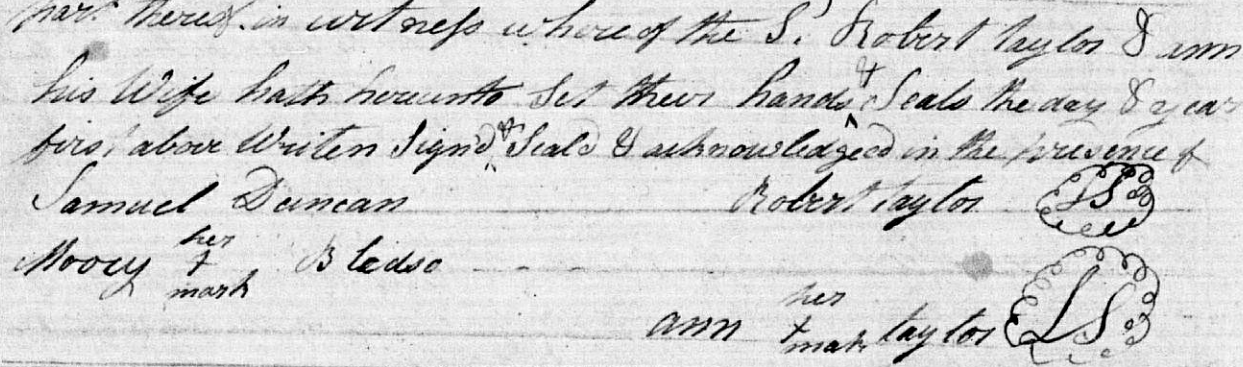 part thereof in witness whereof the Sd Robert taylor & ann
his Wife hath hereunto Set their hands & Seals the day & year
first above Writen Sign'd & Seal'd & acknowledged in the presence of
Samuel Duncan Robert taylor LS
her
Moory + Bledso
mark
her
ann + taylor LS
mark